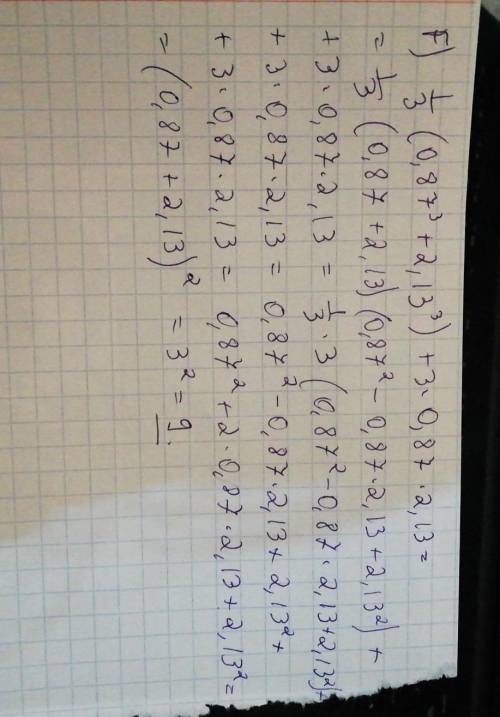 F) 1/3 (0,87³ + 2,13³) + 3·0,87·2,13 =
= 1/3 (0,87 + 2,13) (0,87² - 0,87·2,13 + 2,13²) +
+ 3·0,87·2,13 = 1/3·3 (0,87² - 0,87·2,13 + 2,13²) +
+ 3·0,87·2,13 = 0,87² - 0,87·2,13 + 2,13² +
+ 3·0,87·2,13 = 0,87² + 2·0,87·2,13 + 2,13² =
= (0,87 + 2,13)² = 3² = 9.